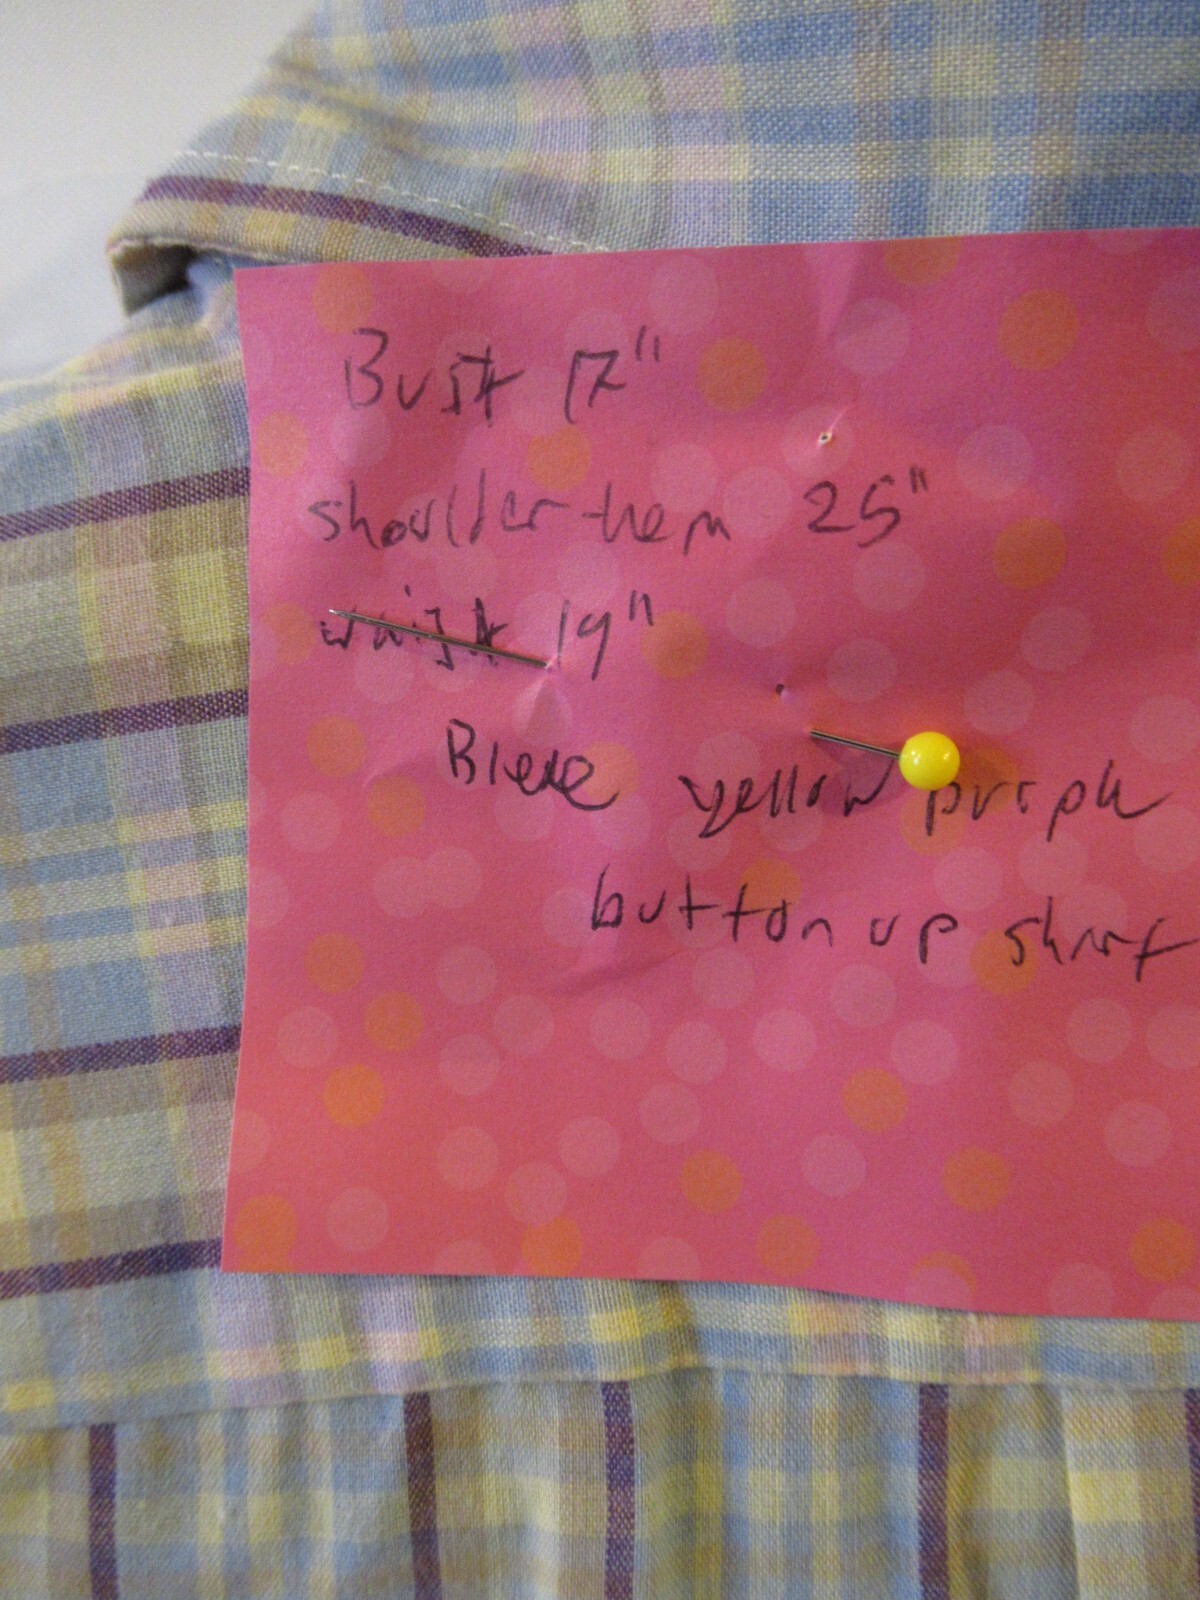 Bust 17"
shoulder-hem 25"
waist 19"
Blue yellow purple
button up shirt